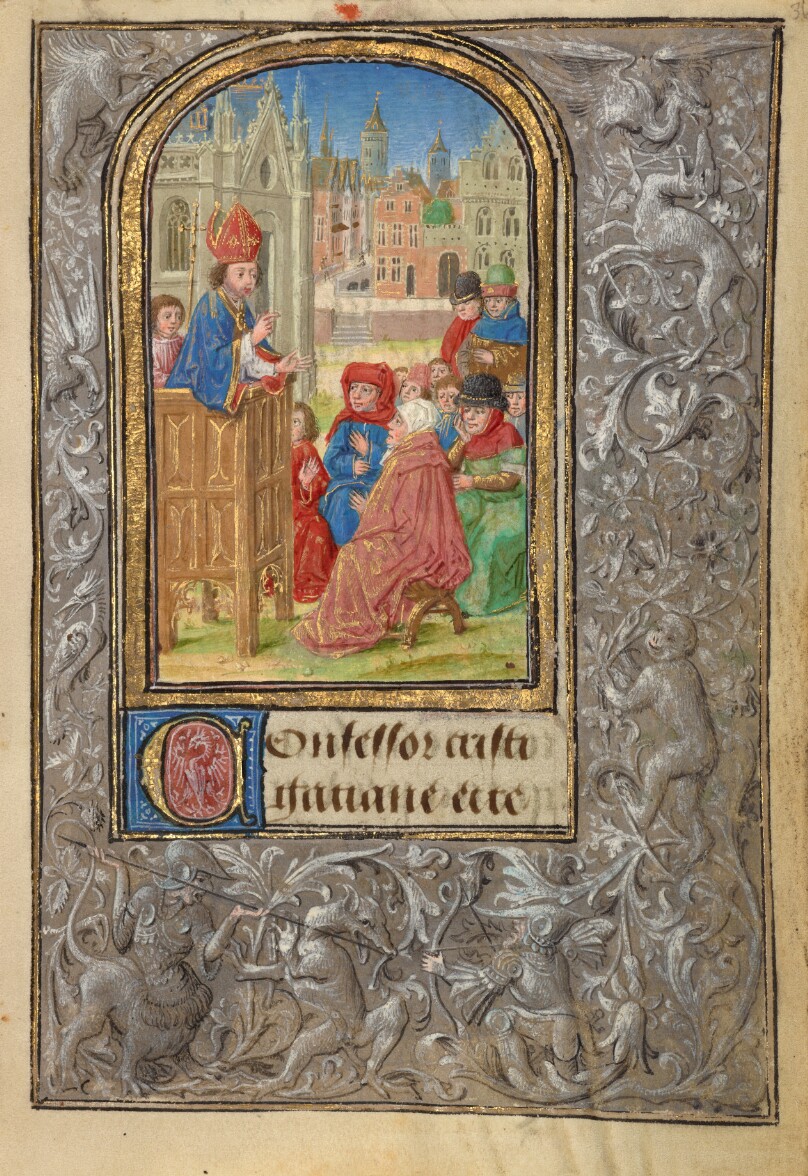 Confessor cristi
gatiane ecce